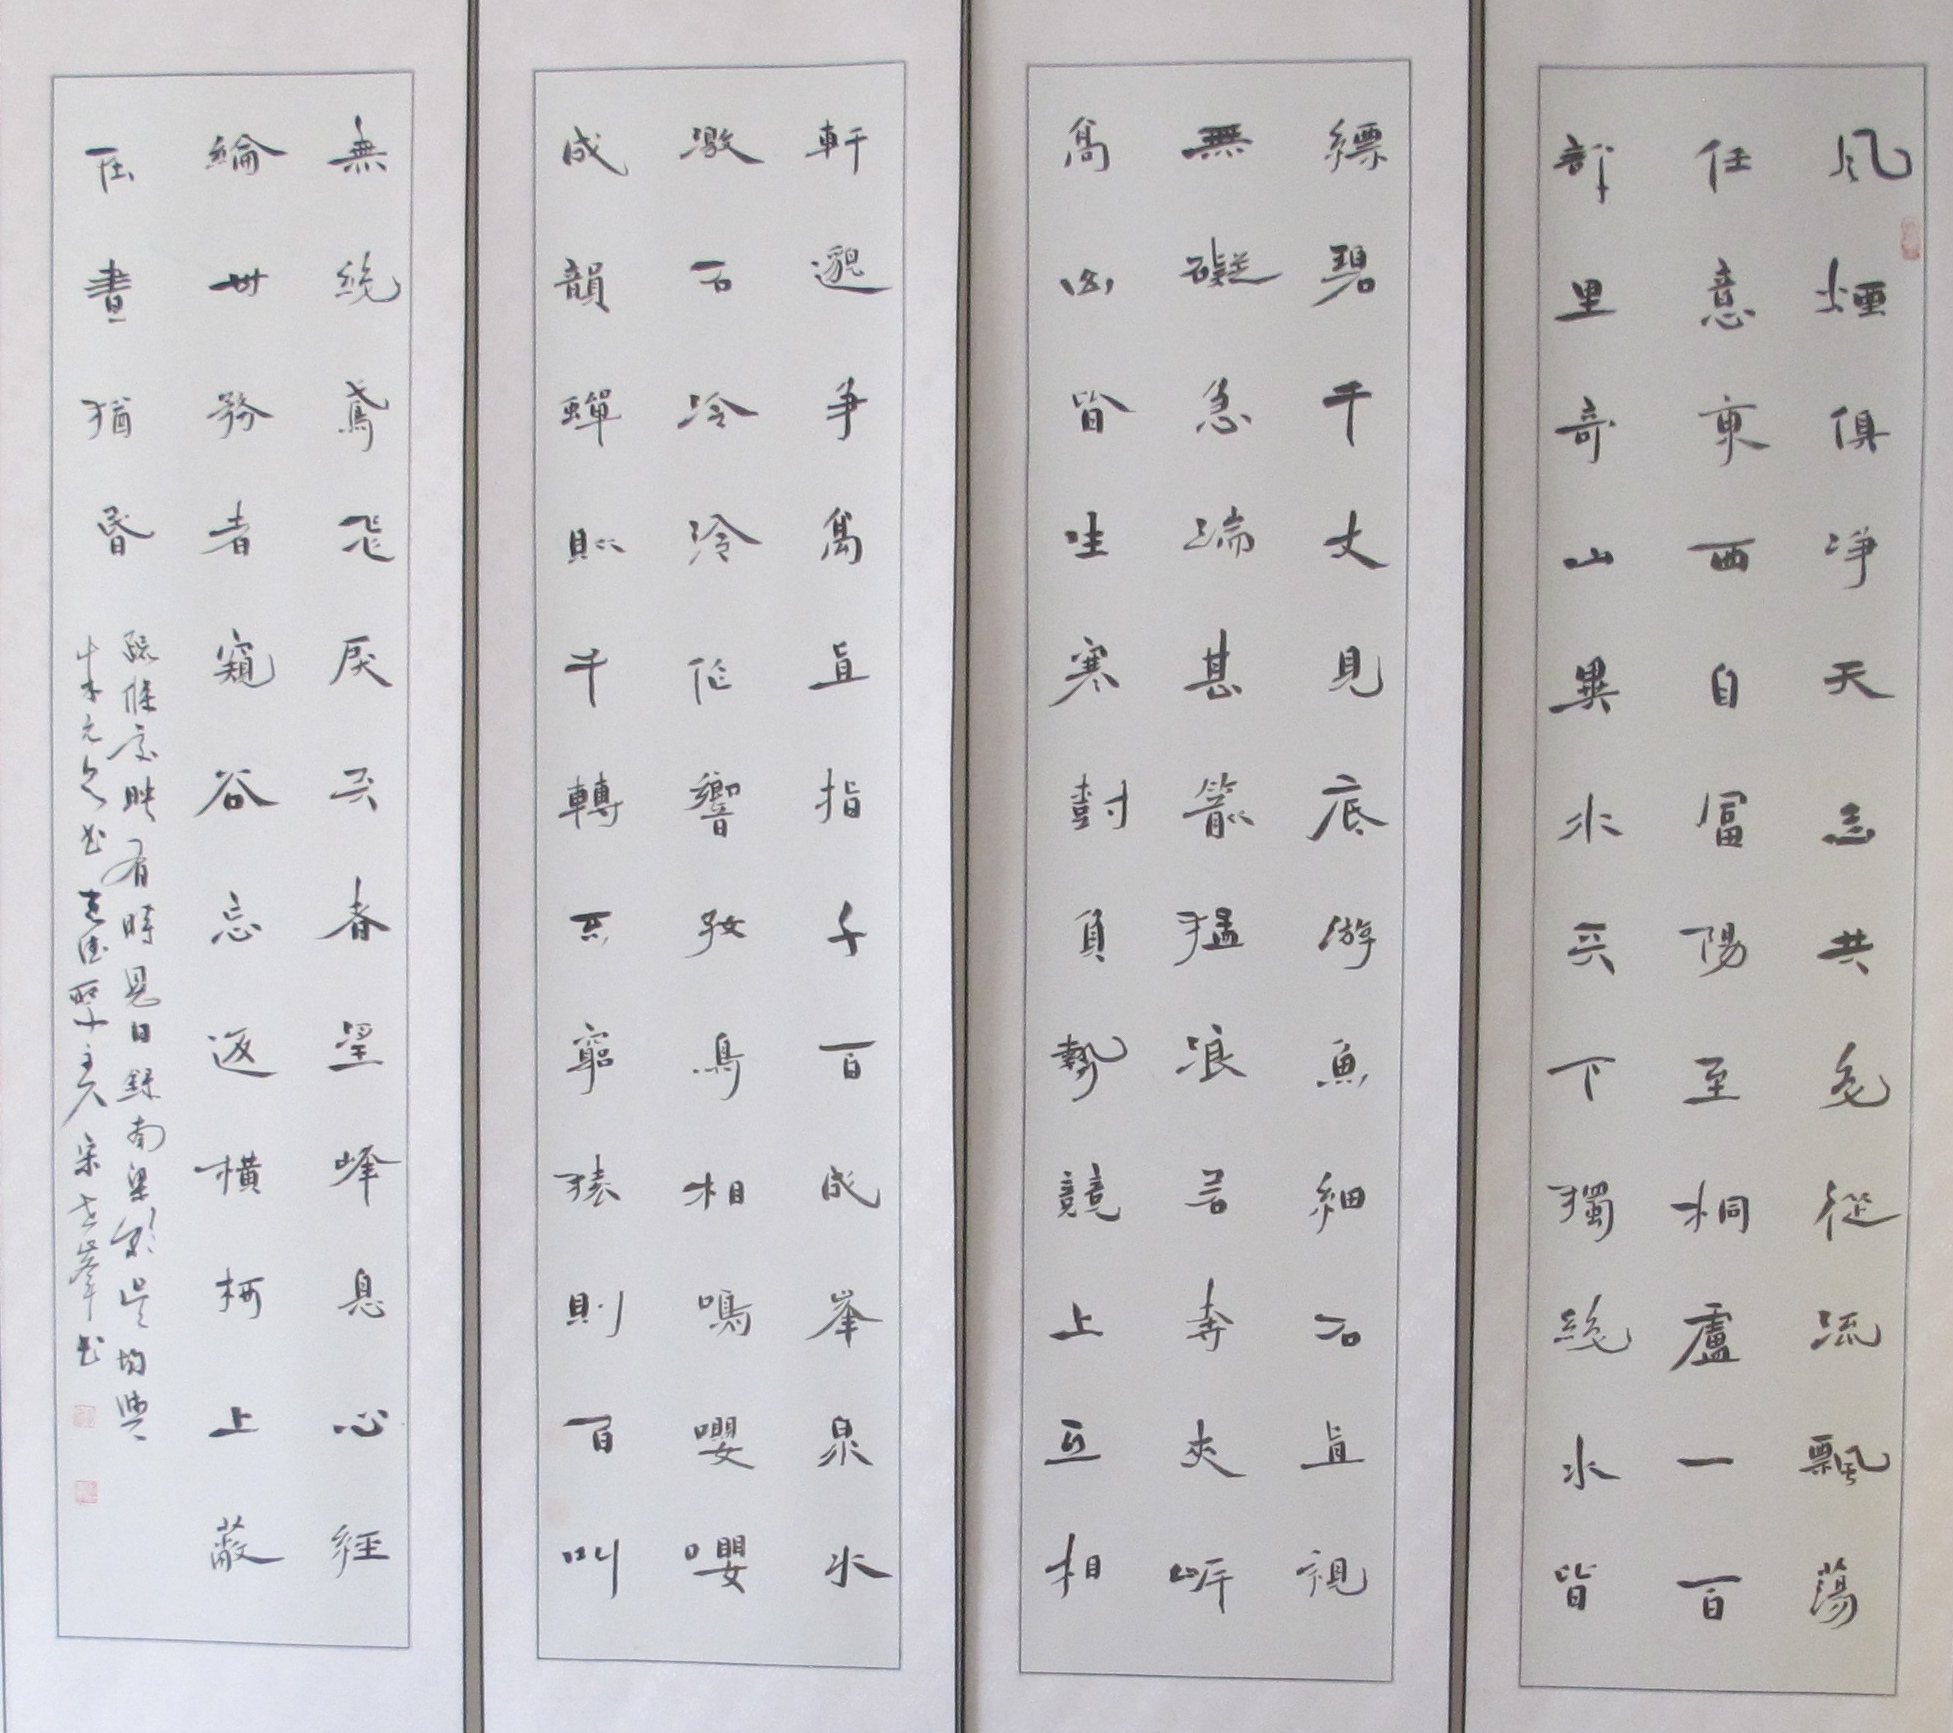 風煙俱淨天山共色從流飄蕩
任意東西自富陽至桐廬一百
許里奇山異水天下獨絕水皆
縹碧千丈見底游魚細石直視
無礙急湍甚箭猛浪若奔夾岸
高山皆生寒樹負勢競上互相
軒邈爭高直指千百成峯泉水
激石泠泠作響好鳥相鳴嚶嚶
成韻蟬則千轉不窮猿則百叫
無絕鳶飛戾天者望峰息心經
綸世務者窺谷忘返橫柯上蔽
在晝猶昏
疏條交映有時見日錄南梁吳均與
朱元思書宋峯書